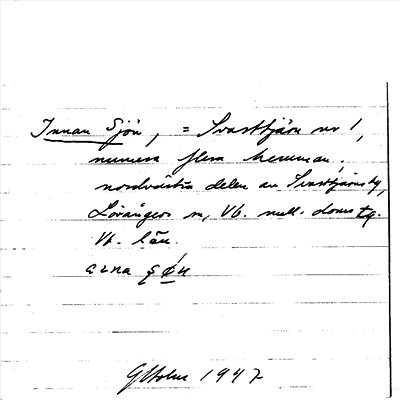 Innan Sjön, = Svarttjärn nr 1,
numera flera hemman,
nordvästra delen av Svarttjärns by,
Lövångers sn, Vb. mell. doms tg.
Vb. län.
G Holm 1947